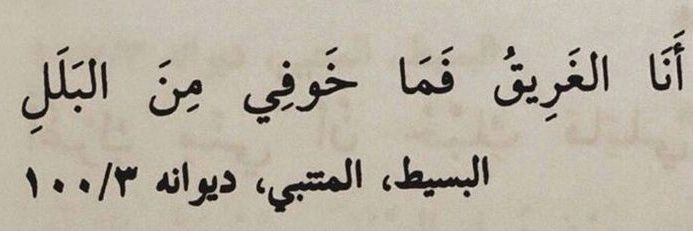 أَنَا الغَرِيقُ فَمَا خَوفِي مِنَ البَلَلِ
البسيط، المتنبي، ديوانه ١٠٠/٣